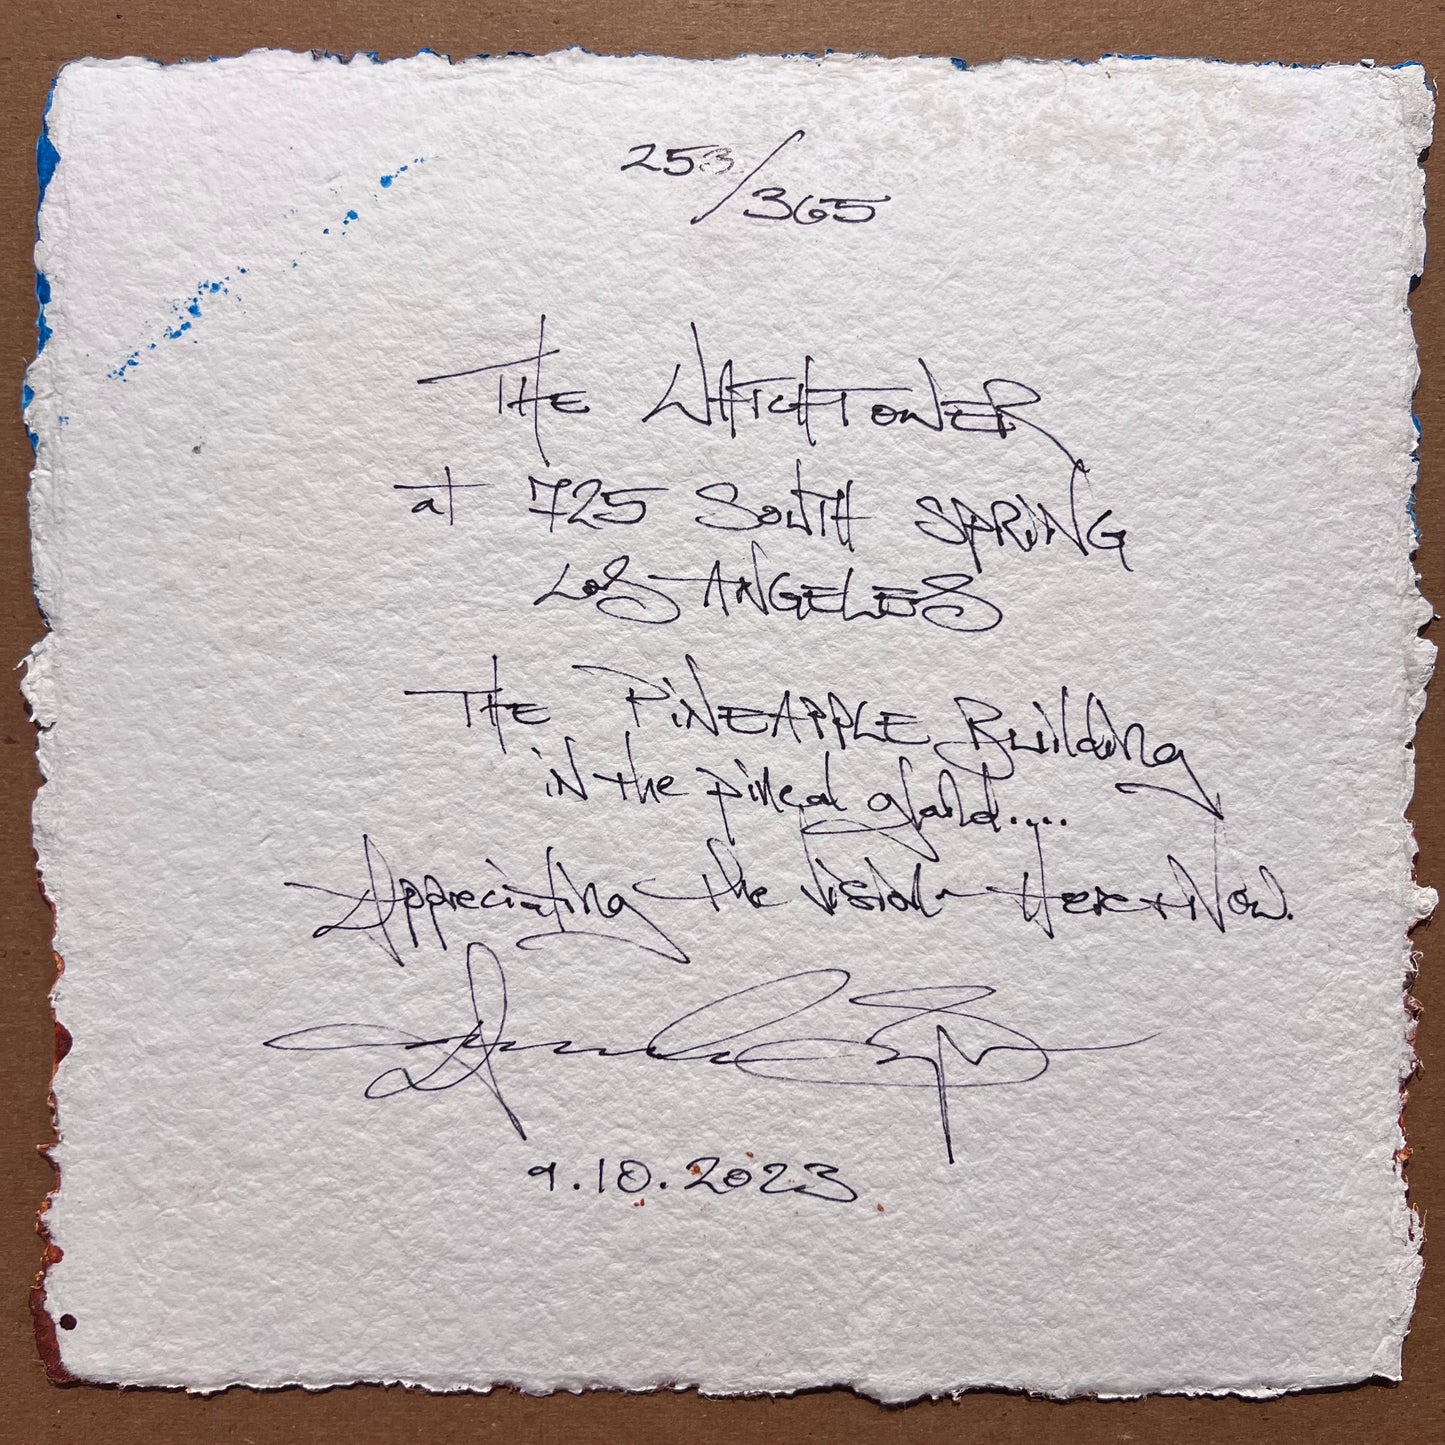 253/365
THE WATCHTOWER
at 725 SOUTH SPRING
LOS ANGELES
THE PiNEAPPLE Building
iN the pineal gland.....
Appreciating the vision ~ HERE + NOW.
9.10.2023